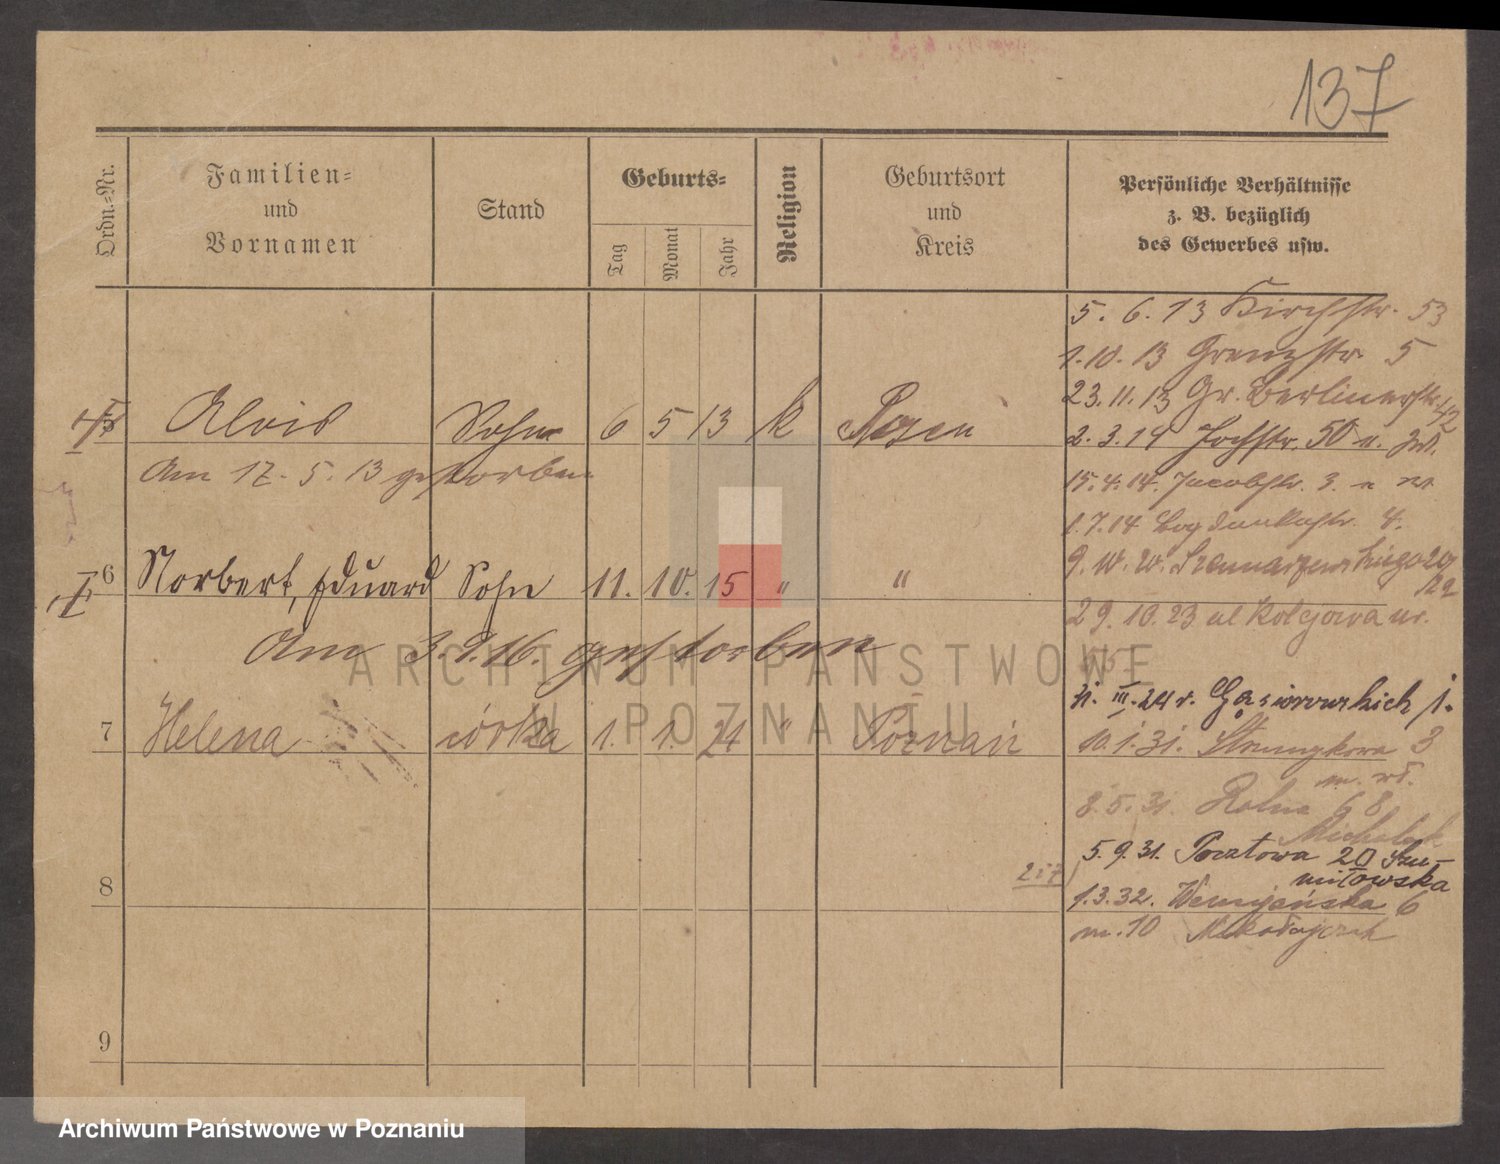 137
Ordn.-Nr.
Familien-
und
Vornamen
Stand
Geburts-
Tag
Monat
Jahr
Religion
Geburtsort
und
Kreis
Persönliche Verhältnisse
z. B. bezüglich
des Gewerbes usw.
5. 6. 13 Kirchstr. 53
1. 10. 13 Grenzstr. 5
23. 11. 13 Gr. Berlinerstr. 42
5 Alois Sohn 6 5 13 k Posen
2. 3. 14 Hochstr. 50
Am 17. 5. 13 gestorben
15. 4. 14. Jacobstr. 3.
1. 7. 14 Bogdankastr. 4.
6 Norbert, Eduard Sohn 11. 10. 15 " "
29. 10. 23 ul Kolejowa
Am 3. 9. 16. gestorben
III. 24 r. Gąsiorowskich
7 Helena córka 1. 1. 21 " Poznań
10. 1. 31. 3
8. 5. 31. Rolna 68
5. 9. 31. Pocztowa 20
217
8
1. 3. 32. 6
m. 10 Mikołajczak
9
ARCHIWUM PAŃSTWOWE
W POZNANIU
Archiwum Państwowe w Poznaniu